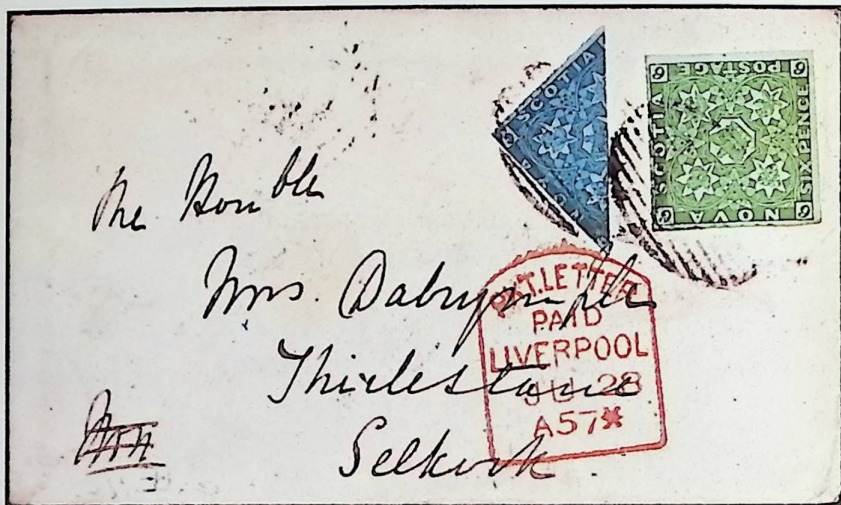 SCOTIA
NOVA SCOTIA POSTAGE SIX PENCE
The Honble
Mrs. Dalrymple
Thirlestane
Selkirk
PKT. LETTER
PAID
LIVERPOOL
28
A57*